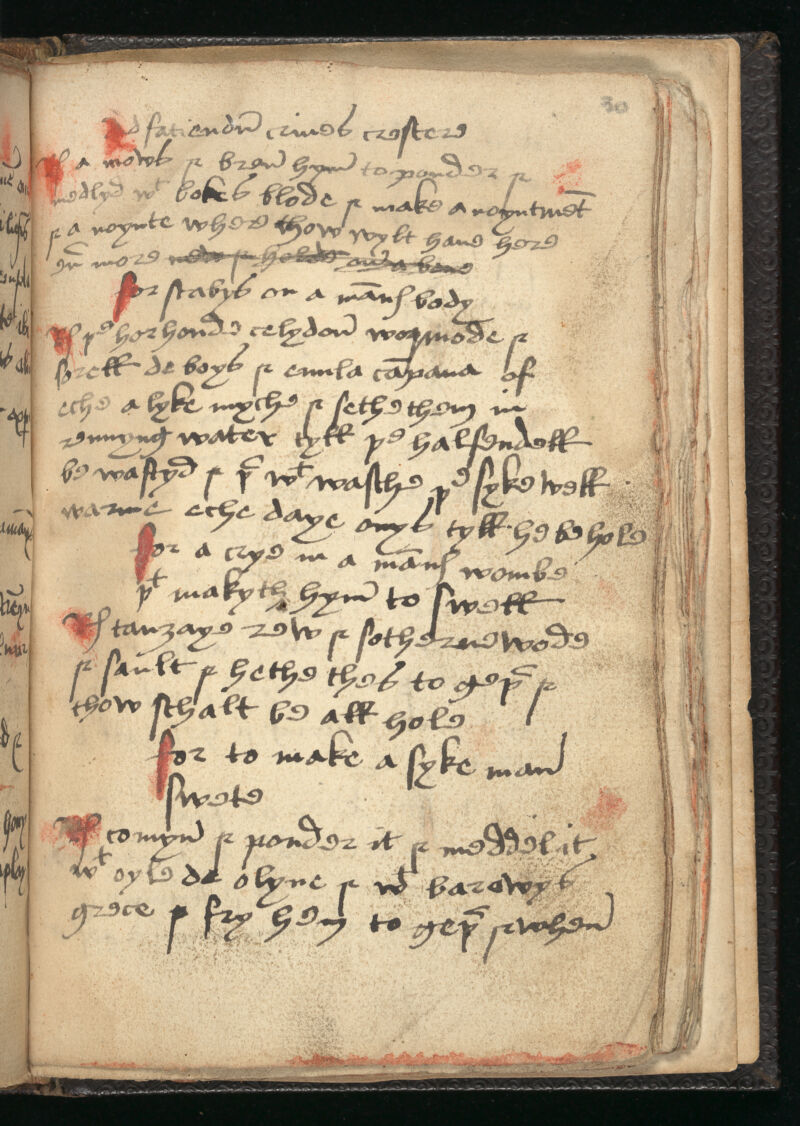 30
Ad faciendū crines crescere
a mows & bren hym to ponder &
medlyd wt bokes blode & make a noyntmēt
& a noynte where thow wylt haue here
more
for scabys on a māns body
þe horhonde celydon wormode &
sorell de boys & enula cāpana of
eche a lyke myche & sethe them in
rennyng water tyll þe halfendell
be wastyd & wt wasche þe syke well
warme eche daye onys tyll he be hole
for a crye in a māns wombe
þt makyth hym to swell
tanzaye rew & sothernewode
& sault & hethe thes to geþ &
thow schalt be all hole
for to make a syke man
swete
comyn & ponder it & meddel it
wt oyle de olyue & wt barowys
grece & fry hem to geþ & when